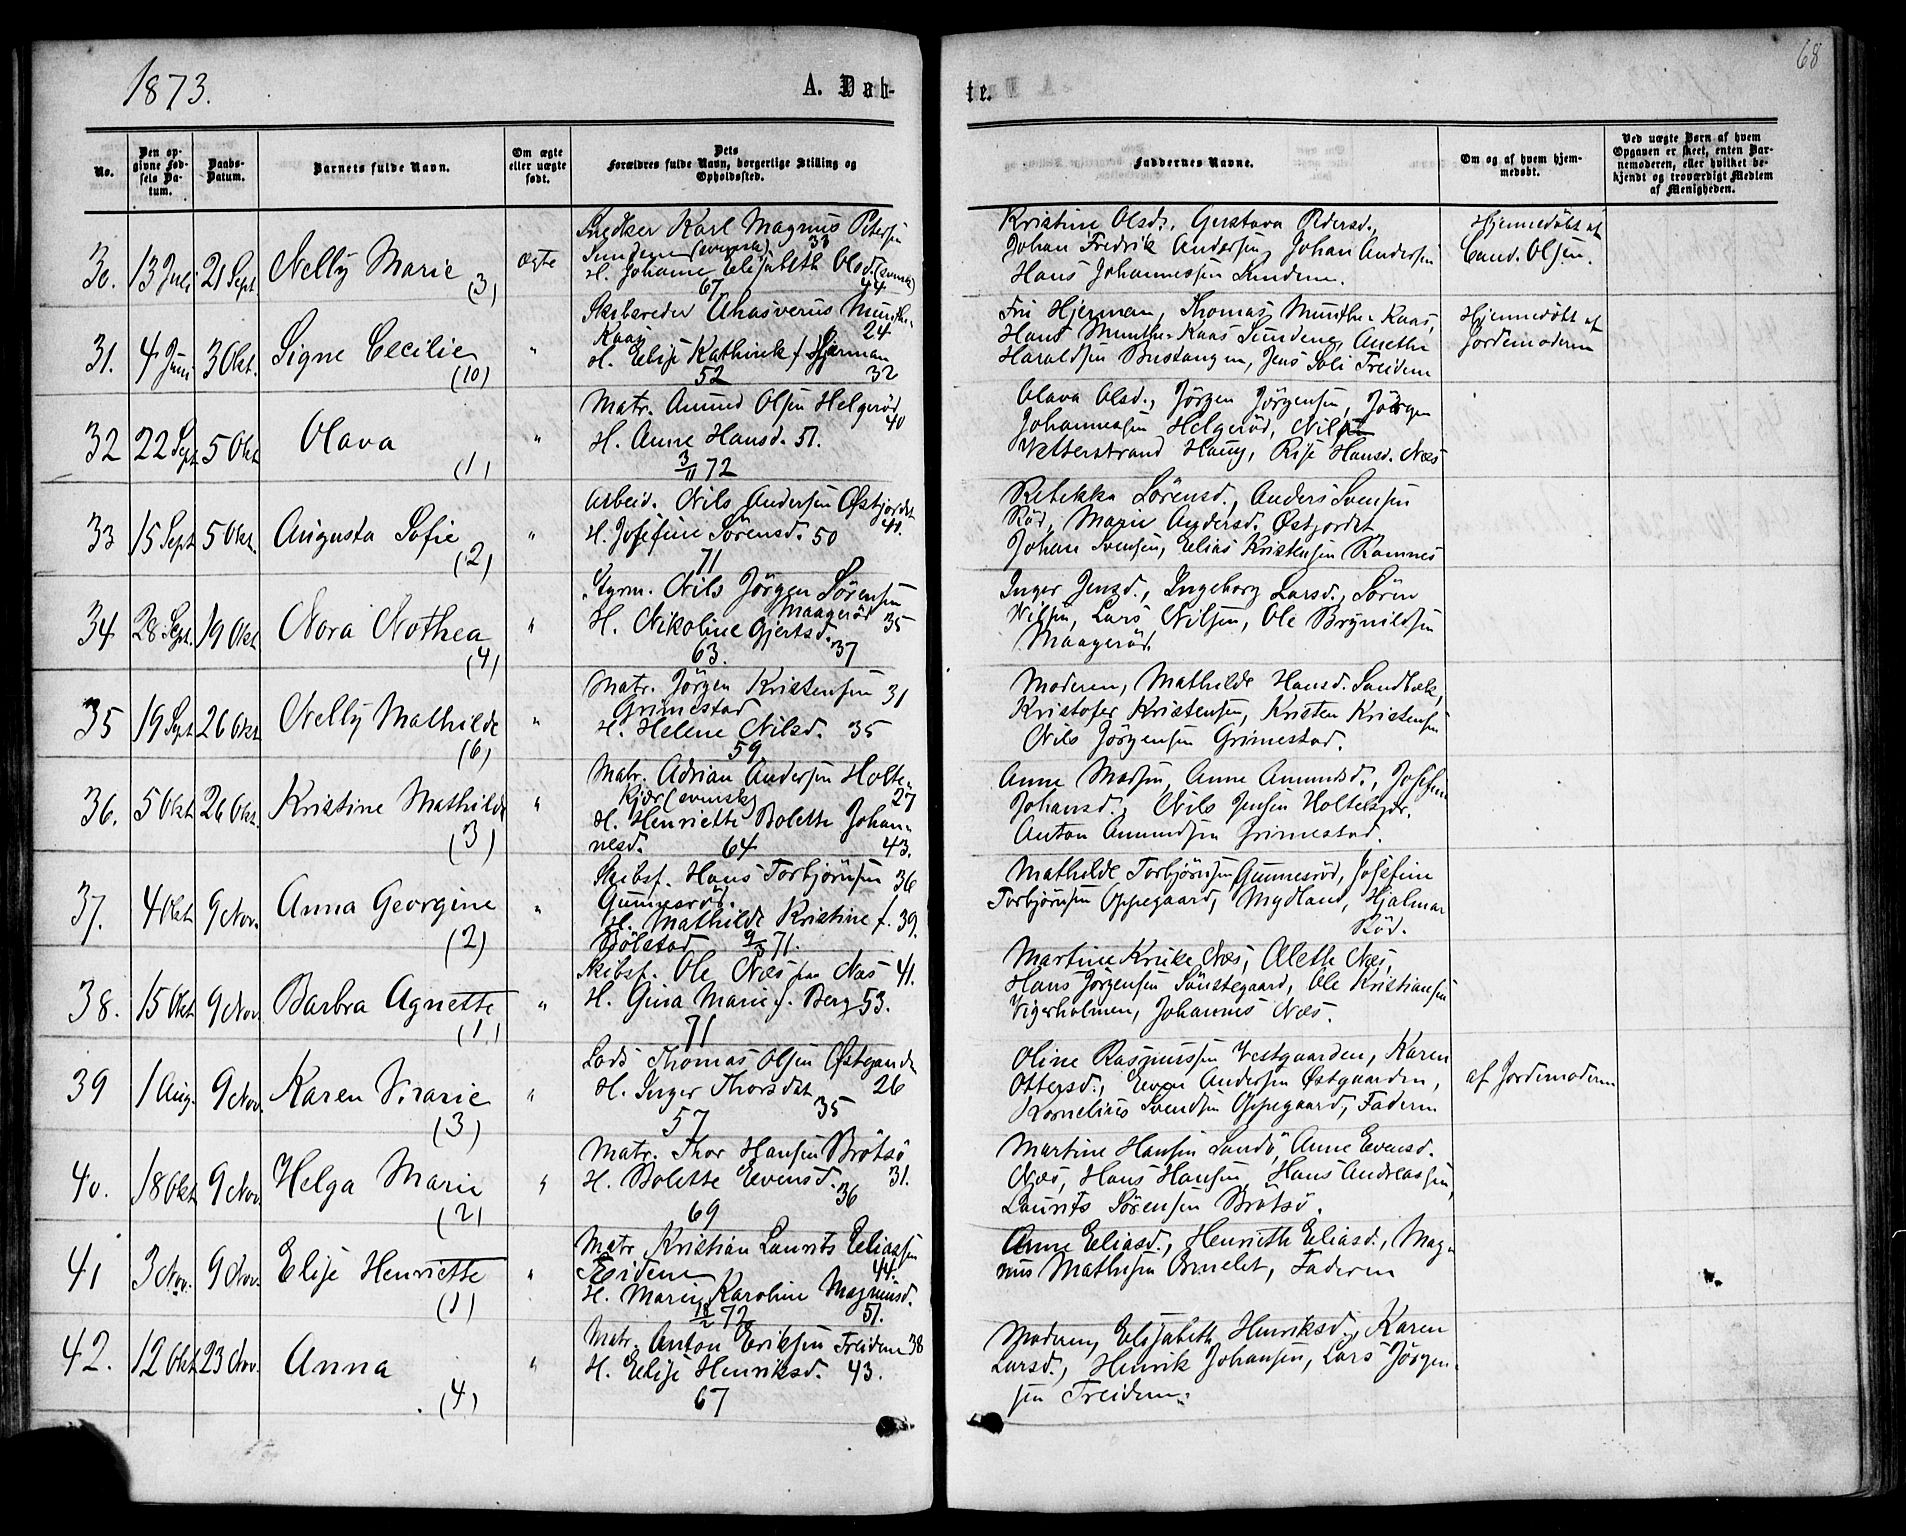 1873.
A. Døb-
te.
68
No.
Den op-
givne Fød-
sels Da-
tum.
Daabs-
Datum.
Barnets fulde Navn.
Om ægte
eller uægte
født.
Dets
Forældres fulde Navn, borgerlige Stilling og
Opholdssted.
Faddernes Navne.
Om og af hvem hjem-
medøbt.
Ved uægte Børn af hvem
Opgaven er skeet, enten Bar-
nemoderen, eller hvilket be-
kjendt og troværdigt Medlem
af Menigheden.
30. 13 Juli 21 Sept. Nelly Marie (3) ægte
Snedker Karl Magnus Petersen
Sundene (svensk) 33
H. Johanne Elisabeth Olsd. (svensk)
67 44
Kristine Olsd., Gustava Pedersd.,
Johan Fredrik Andersen, Johan Andersen
Hans Johannessen Sundene.
Hjemmedøbt af
Cand. Olsen.
31. 4 Juni 3 Okt. Signe Cecilie (10) "
Skibsreder Ahasverus Munthe-
Kaas 24
H. Elise Kathinck f. Hjerman
52 32
Fru Hjerman, Thomas Munthe-Kaas,
Hans Munthe-Kaas Sundene, Anethe
Haraldsen Bustangen, Jens Soli Treidene
Hjemmedøbt af
Jordemoderen
32 22 Sept 5 Okt Olava (1) "
Matr. Amund Olsen Helgerød
40
H. Anne Hansd. 51.
3/11 72
Olava Olsd., Jørgen Jørgensen, Jørgen
Johannessen Helgerød, Nils
Vetterstrand Haug, Risje Hansd. Næs
33 15 Sept 5 Okt. Augusta Sofie (2) "
Arbeid. Nils Andersen Østjordet
41.
H. Josefine Sørensd. 50
71
Rebekka Sørensd., Anders Svensen
Rød, Marie Andersd. Østjordet
Johan Svensen, Elias Kristensen Ramnes
34 28 Sept. 19 Okt Nora Nothea (4) "
Styrm. Nils Jørgen Sørensen
Maagerød 35
H. Nikoline Gjertsd.
63. 37
Inger Jensd., Ingeborg Larsd., Søren
Nilsen, Lars Nilsen, Ole Brynildsen
Maagerød.
35 19 Sept 26 Okt Nelly Mathilde (6) "
Matr. Jørgen Kristensen 31
Grimestad
H. Helene Nilsd. 35
59
Moderen, Mathilde Hansd. Sandbæk,
Kristofer Kristensen, Kristen Kristensen
Nils Jørgensen Grimestad.
36. 5 Okt 26 Okt. Kristine Mathilde (3) "
Matr. Adrian Andersen Holte-
kjær (svensk) 27
H. Henriette Bolette Johan-
nesd. 64 43.
Anne Madsen, Anne Amundsd., Josefine
Johansd., Nils Jensen Holtekjær,
Anton Amundsen Grimestad.
37. 4 Okt 9 Nov. Anna Georgine (2) "
Skibsf. Hans Torbjørnsen 36
Gunnerød.
H. Mathilde Kristine f. 39.
Bølstad 9/3 71.
Mathilde Torbjørnsen Gunnerød, Josefine
Torbjørnsen Oppegaard, Mydland, Hjalmar
Rød.
38. 15 Okt 9 Nov Barbra Agnette (1) "
Skibsf. Ole Næs paa Næs 41.
H. Gina Marie f. Berg 53.
71
Martine Kruke Næs, Alethe Næs,
Hans Jørgensen Sønstegaard, Ole Kristiansen
Vigerholmen, Johannes Næs.
39 1 Aug. 9 Nov. Karen Virarie (3) "
Lods Thomas Olsen Østgaarden
H. Inger Thorsdat 26
57 35
Oline Rasmussen Vestgaarden, Karen
Ottersd., Even Andersen Østgaarden,
Kornelius Svendsen Oppegaard, Faderen
af Jordemoderen
40. 18 Okt 9 Nov Helga Marie (2) "
Matr. Thor Hansen Brøtsø
H. Bolette Evensd. 31.
69 36
Martine Hansen Sandø, Anne Evensd.
Næs, Hans Hansen, Hans Andreassen,
Laurits Sørensen Brøtsø.
41 3 Nov. 9 Nov. Elise Henriette (1) "
Matr. Kristian Laurits Eliassen
Treidene 44.
H. Marie Karoline Magnusd.
18/2 72 51.
Anne Eliasd., Henriette Eliasd., Mag-
nus Mathisen Ormelet, Faderen
42. 12 Okt 23 Nov. Anna (4) "
Matr. Anton Eriksen Treidene 38
H. Elise Henriksd. 43.
67
Moderen, Elisabeth Henriksd., Karen
Larsd., Henrik Johansen, Lars Jørgen-
sen Treidene.